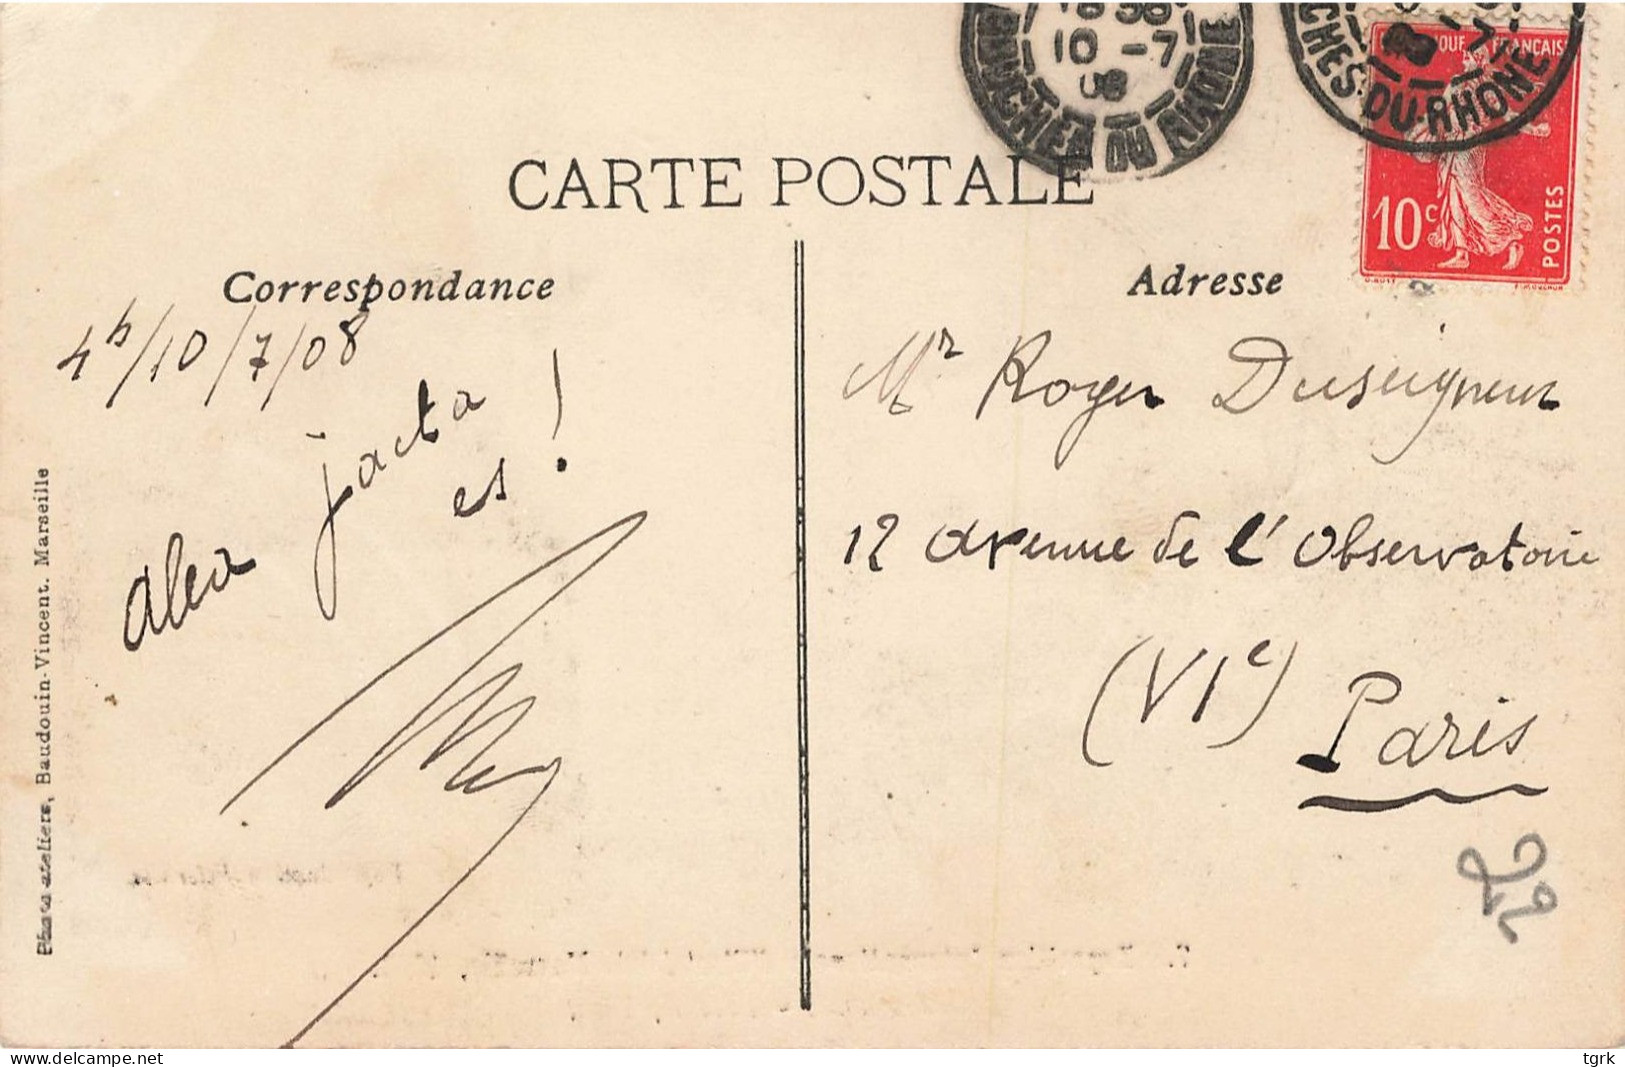 CARTE POSTALE
Correspondance
Adresse
4h/10/7/08
alea jacta
es !
Mr Roger Duseigneur
12 avenue de l'Observatoire
(VIe)
Paris
22
Photo ateliers, Baudouin-Vincent. Marseille
10 -7
08
BOUCHES DU RHONE
CHES-DU-RHONE
QUE FRANÇAIS
10c
POSTES
www.delcampe.net
tgrk